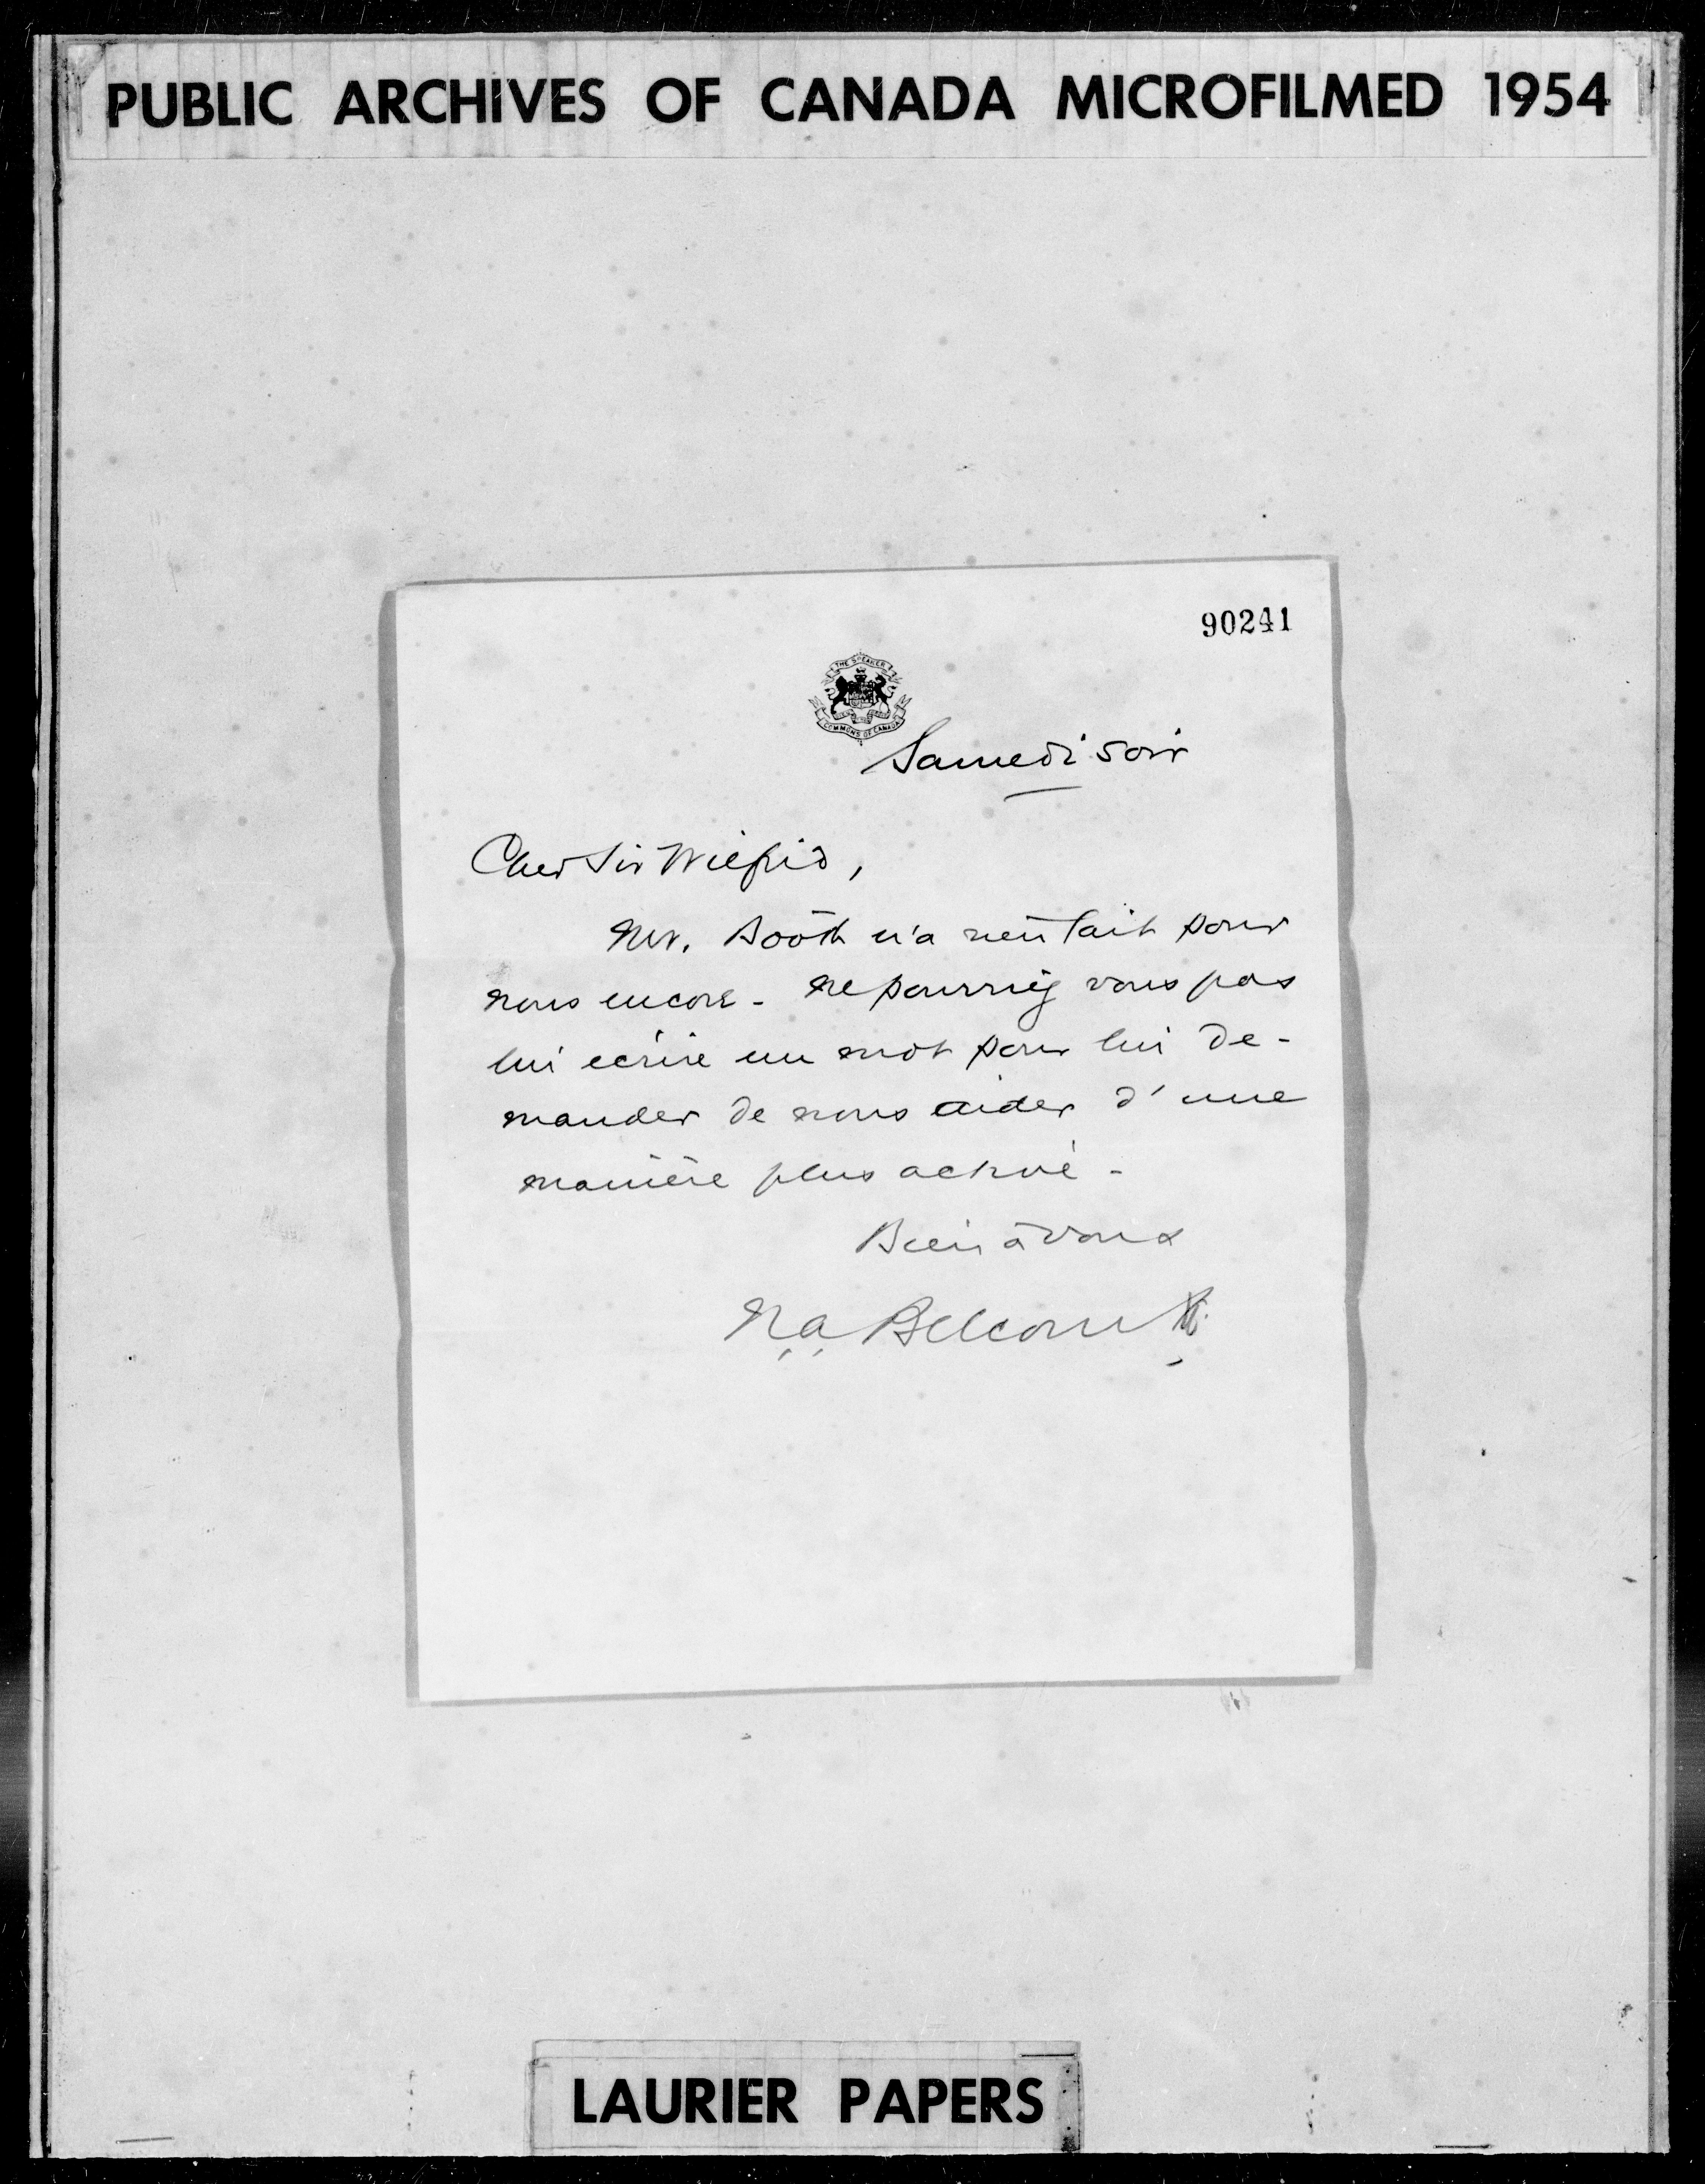 PUBLIC ARCHIVES OF CANADA MICROFILMED 1954
90241
THE SPEAKER
COMMONS OF CANADA
Samedi soir
Cher Sir Wilfrid,
Mr. Booth n'a rien fait pour
nous encore - Ne pourriez vous pas
lui ecrire un mot pour lui de-
mander de nous aider d'une
manière plus active -
Bien à vous
N.A. Belcourt
LAURIER PAPERS